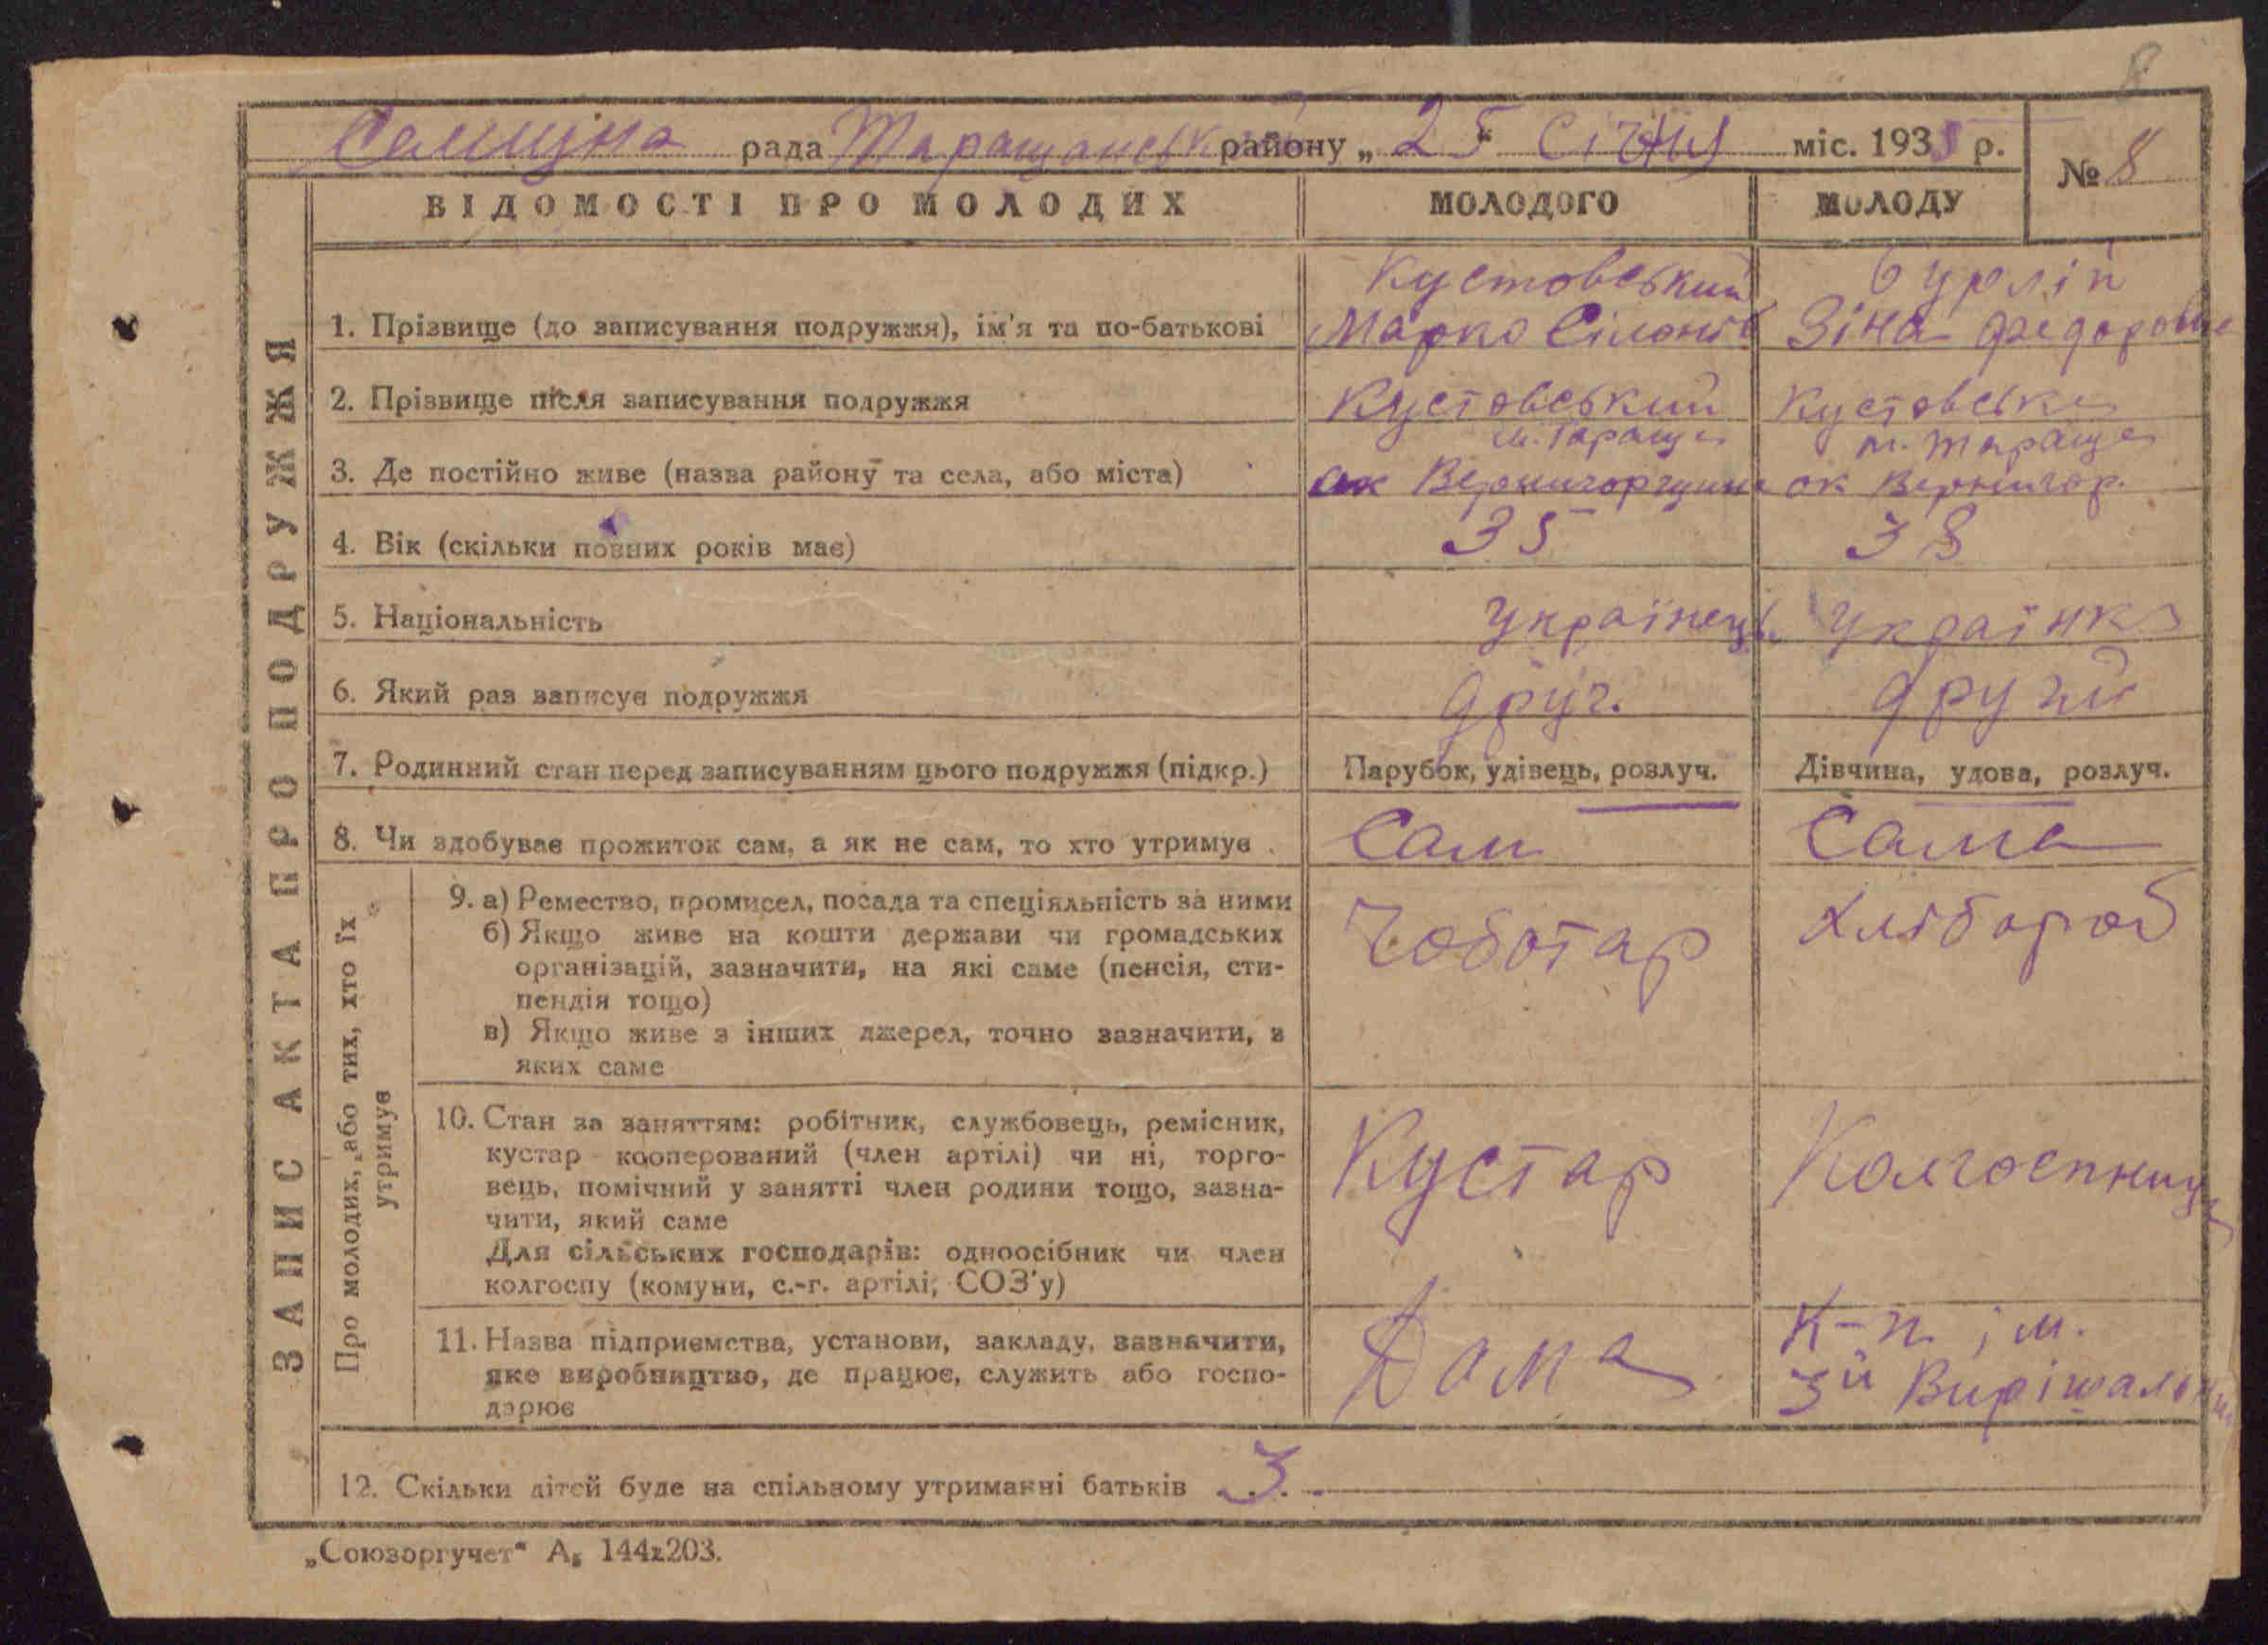 8
Селищна рада Таращанськ району „ 25 “ Січня міс. 1935 р.
№ 8
ВІДОМОСТІ ПРО МОЛОДИХ
МОЛОДОГО
МОЛОДУ
ЗАПИС АКТА ПРО ПОДРУЖЖЯ
1. Прізвище (до записування подружжя), ім'я та по-батькові
Кустовський
Марко Сілонів
Бурлій
Зіна Федоровне
2. Прізвище після записування подружжя
Кустовський
Кустовська
3. Де постійно живе (назва району та села, або міста)
м. Тараща
ок Вернигорщина
м. Тараща
ок Вернигор.
4. Вік (скільки повних років має)
35
38
5. Національність
Українець
Українка
6. Який раз записує подружжя
друг.
другий
7. Родинний стан перед записуванням цього подружжя (підкр.)
Парубок, удівець, розлуч.
Дівчина, удова, розлуч.
8. Чи здобуває прожиток сам, а як не сам, то хто утримує .
Сам
Сама
Про молодих, або тих, хто їх
утримує
9. а) Ремество, промисел, посада та спеціяльність за ними
б) Якщо живе на кошти держави чи громадських
організацій, зазначити, на які саме (пенсія, сти-
пендія тощо)
в) Якщо живе з інших джерел, точно зазначити, з
яких саме
Чоботар
Хлібороб
10. Стан за заняттям: робітник, службовець, ремісник,
кустар кооперований (член артілі) чи ні, торго-
вець, помічний у занятті член родини тощо, зазна-
чити, який саме
Для сільських господарів: одноосібник чи член
колгоспу (комуни, с.-г. артілі, СОЗ'у)
Кустар
Колгоспниця
11. Назва підприємства, установи, закладу, зазначити,
яке виробництво, де працює, служить або госпо-
дарює
Дома
К-п. ім.
3й Вирішальний
12. Скільки дітей буде на спільному утриманні батьків . 3 .
„Союзоргучет“ А₅ 144х203.